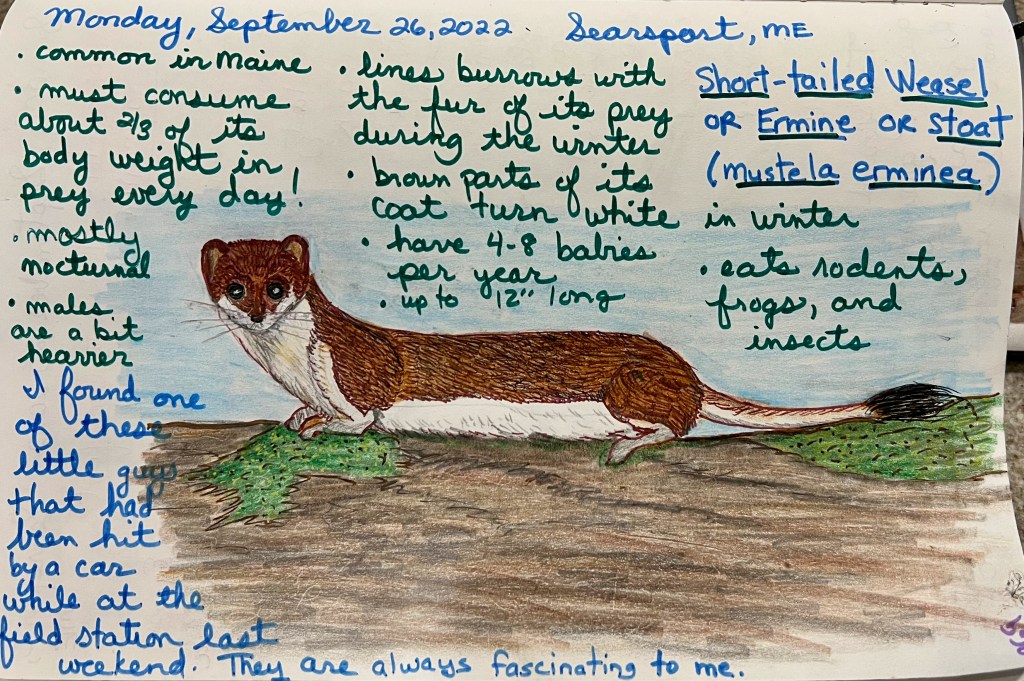 Monday, September 26, 2022. Searsport, ME
Short-tailed Weasel
or Ermine or Stoat
(mustela erminea)
• common in Maine
• must consume
about 2/3 of its
body weight in
prey every day!
• mostly
nocturnal
• males
are a bit
heavier
• lines burrows with
the fur of its prey
during the winter
• brown parts of its
coat turn white in winter
• have 4-8 babies
per year
• up to 12" long
• eats rodents,
frogs, and
insects
I found one
of these
little guys
that had
been hit
by a car
while at the
field station last
weekend. They are always fascinating to me.